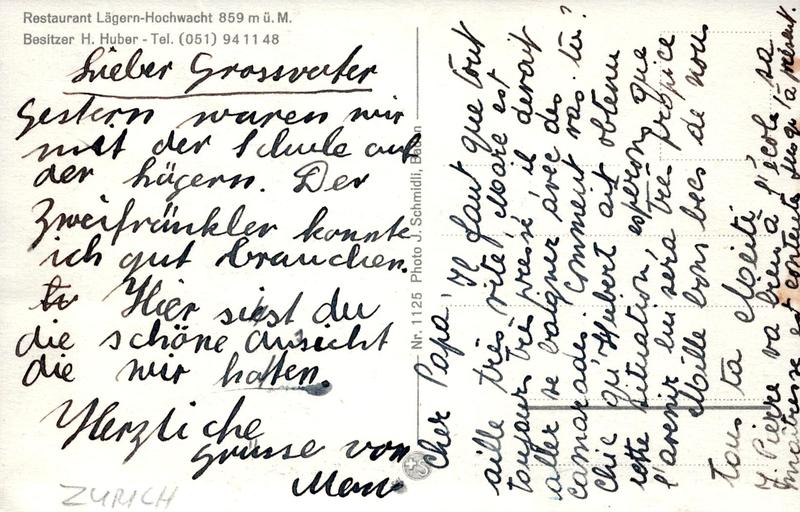 Restaurant Lägern-Hochwacht 859 m ü. M.
Besitzer H. Huber - Tel. (051) 94 11 48
Lieber Grossvater
Gestern waren wir
mit der Schule auf
der Lägern. Der
Zweifränkler konnte
ich gut brauchen.
Hier siest du
die schöne Ansicht
die wir hatten.
Herzliche
Grüsse von
Marc
ZURICH
Nr. 1125 Photo J. Schmidli, Baden
Cher Papa, Il faut que tout
aille très vite, Marc est
toujours très pressé il devait
aller se baigner avec des
camarades. Comment vas-tu?
Chic qu'Hubert ait obtenu
cette situation, esperons que
l'avenir lui sera très propice
Mille bons becs de nous
tous ta Meité
J. Pierre va bien à l'école sa
maîtresse est contente jusqu'à présent.